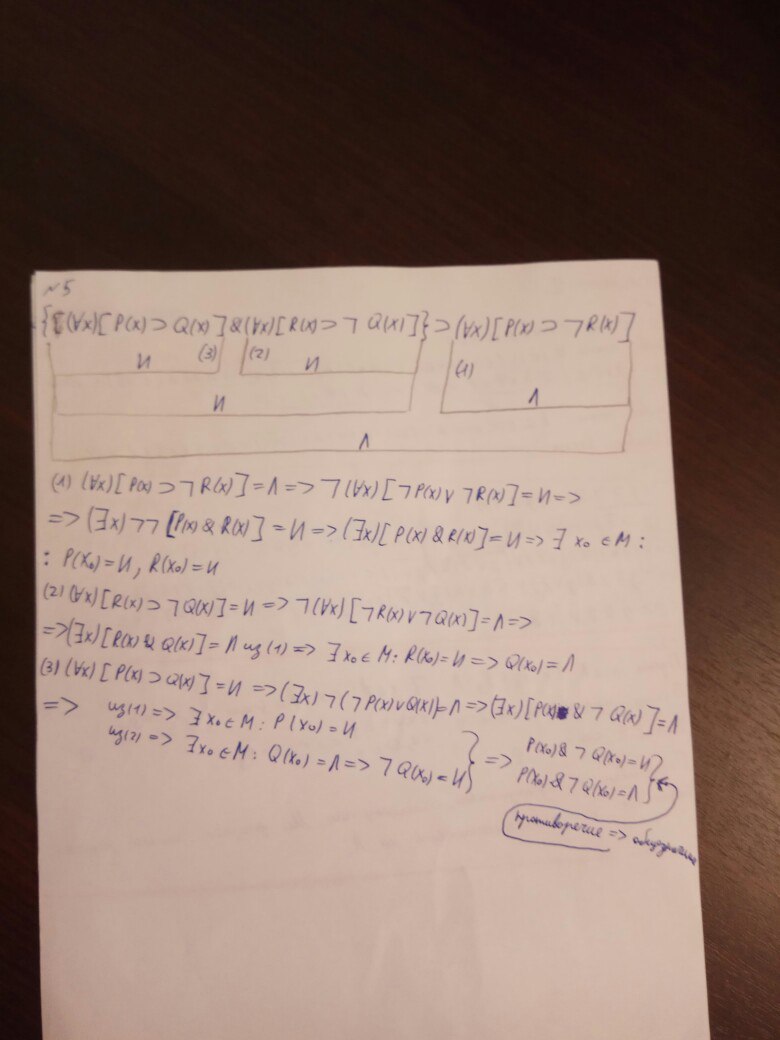 №5
{(∀x)[P(x)⊃Q(x)]&(∀x)[R(x)⊃¬Q(x)]}⊃(∀x)[P(x)⊃¬R(x)]
И (3) (2) И (1)
И Л
Л
(1) (∀x)[P(x)⊃¬R(x)]=Л=>¬(∀x)[¬P(x)∨¬R(x)]=И=>
=>(∃x)¬¬[P(x)&R(x)]=И=>(∃x)[P(x)&R(x)]=И=>∃ x₀∈M:
: P(x₀)=И, R(x₀)=И
(2) (∀x)[R(x)⊃¬Q(x)]=И=>¬(∀x)[¬R(x)∨¬Q(x)]=Л=>
=>(∃x)[R(x)&Q(x)]=Л из (1)=>∃x₀∈M: R(x₀)=И=>Q(x₀)=Л
(3) (∀x)[P(x)⊃Q(x)]=И=>(∃x)¬(¬P(x)∨Q(x))=Л=>(∃x)[P(x)&¬Q(x)]=Л
=> из(1)=>∃x₀∈M: P(x₀)=И
из(2)=>∃x₀∈M: Q(x₀)=Л=>¬Q(x₀)=И } => P(x₀)&¬Q(x₀)=И
P(x₀)&¬Q(x₀)=Л }
противоречие => общезначима